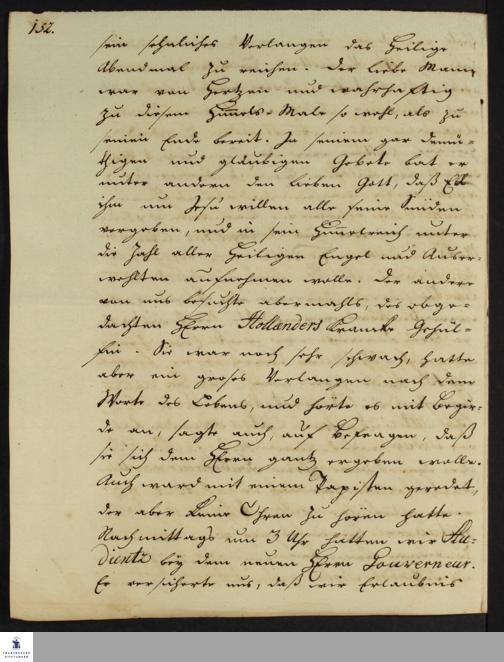 152.
sein sehnliches Verlangen das heilige
Abendmal zu reichen. Der liebe Mann
war von Hertzen und wahrhaftig
zu diesem Himels-Male so wohl, als zu
seinen Ende bereit. In seinem gar demü-
thigen und gläubigen Gebete bat er
unter andern den lieben Gott, daß Er
ihm um Jesu willen alle seine Sünden
vergeben, und in sein Himelreich unter
die Zahl aller heiligen Engel und Auser-
wehlten aufnehmen wolle. Der andere
von uns besuchte abermahls, des obge-
dachten Herrn Hollanders krancke Gehül-
fin. Sie war noch sehr schwach, hatte
aber ein groses Verlangen nach dem
Worte des Lebens, und hörte es mit Begier-
de an, sagte auch, auf Befragen, daß
sie sich dem Herrn gantz ergeben wolle.
Auch ward mit einem Papisten geredet,
der aber keine Ohren zu hören hatte.
Nachmittags um 3 Uhr hatten wir Au-
dientz bey dem neuen Herrn Gouverneur.
Er versicherte uns, daß wir Erlaubnis
FRANCKESCHE
STIFTUNGEN